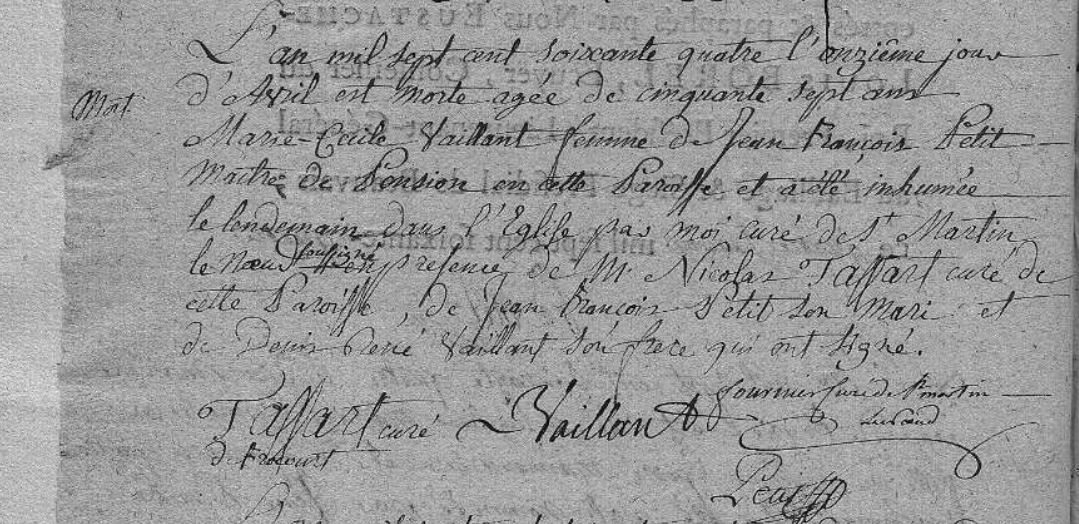 L'an mil sept cent soixante quatre l'onzième jour
Mort.
d'Avril est morte agée de cinquante sept ans
Marie-Cecile Vaillant femme de Jean François Petit
Maitre de Pension en cette Paroisse et a été inhumée
le lendemain dans l'Eglise par moi curé de St Martin
le Nœud soussigné en presence de Mr Nicolas Tassart curé de
cette Paroisse, de Jean François Petit son Mari et
de Denis René Vaillant son frere qui ont signé.
Tassart curé
de frocourt
Vaillant
fournier Curé de St martin
Le Nœud
Petit